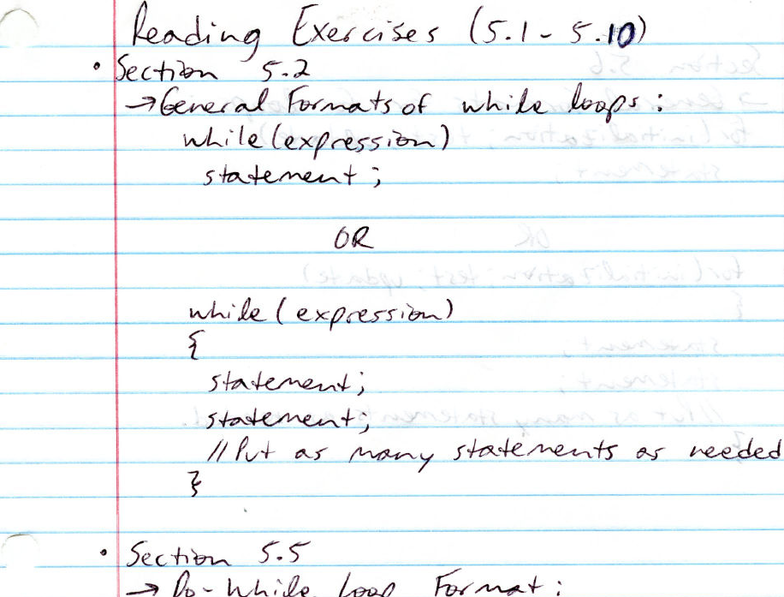 Reading Exercises (5.1 - 5.10)
• Section 5.2
→ General Formats of while loops:
while (expression)
statement;
OR
while (expression)
{
statement;
statement;
// Put as many statements as needed
}
• Section 5.5
→ Do-While Loop Format: